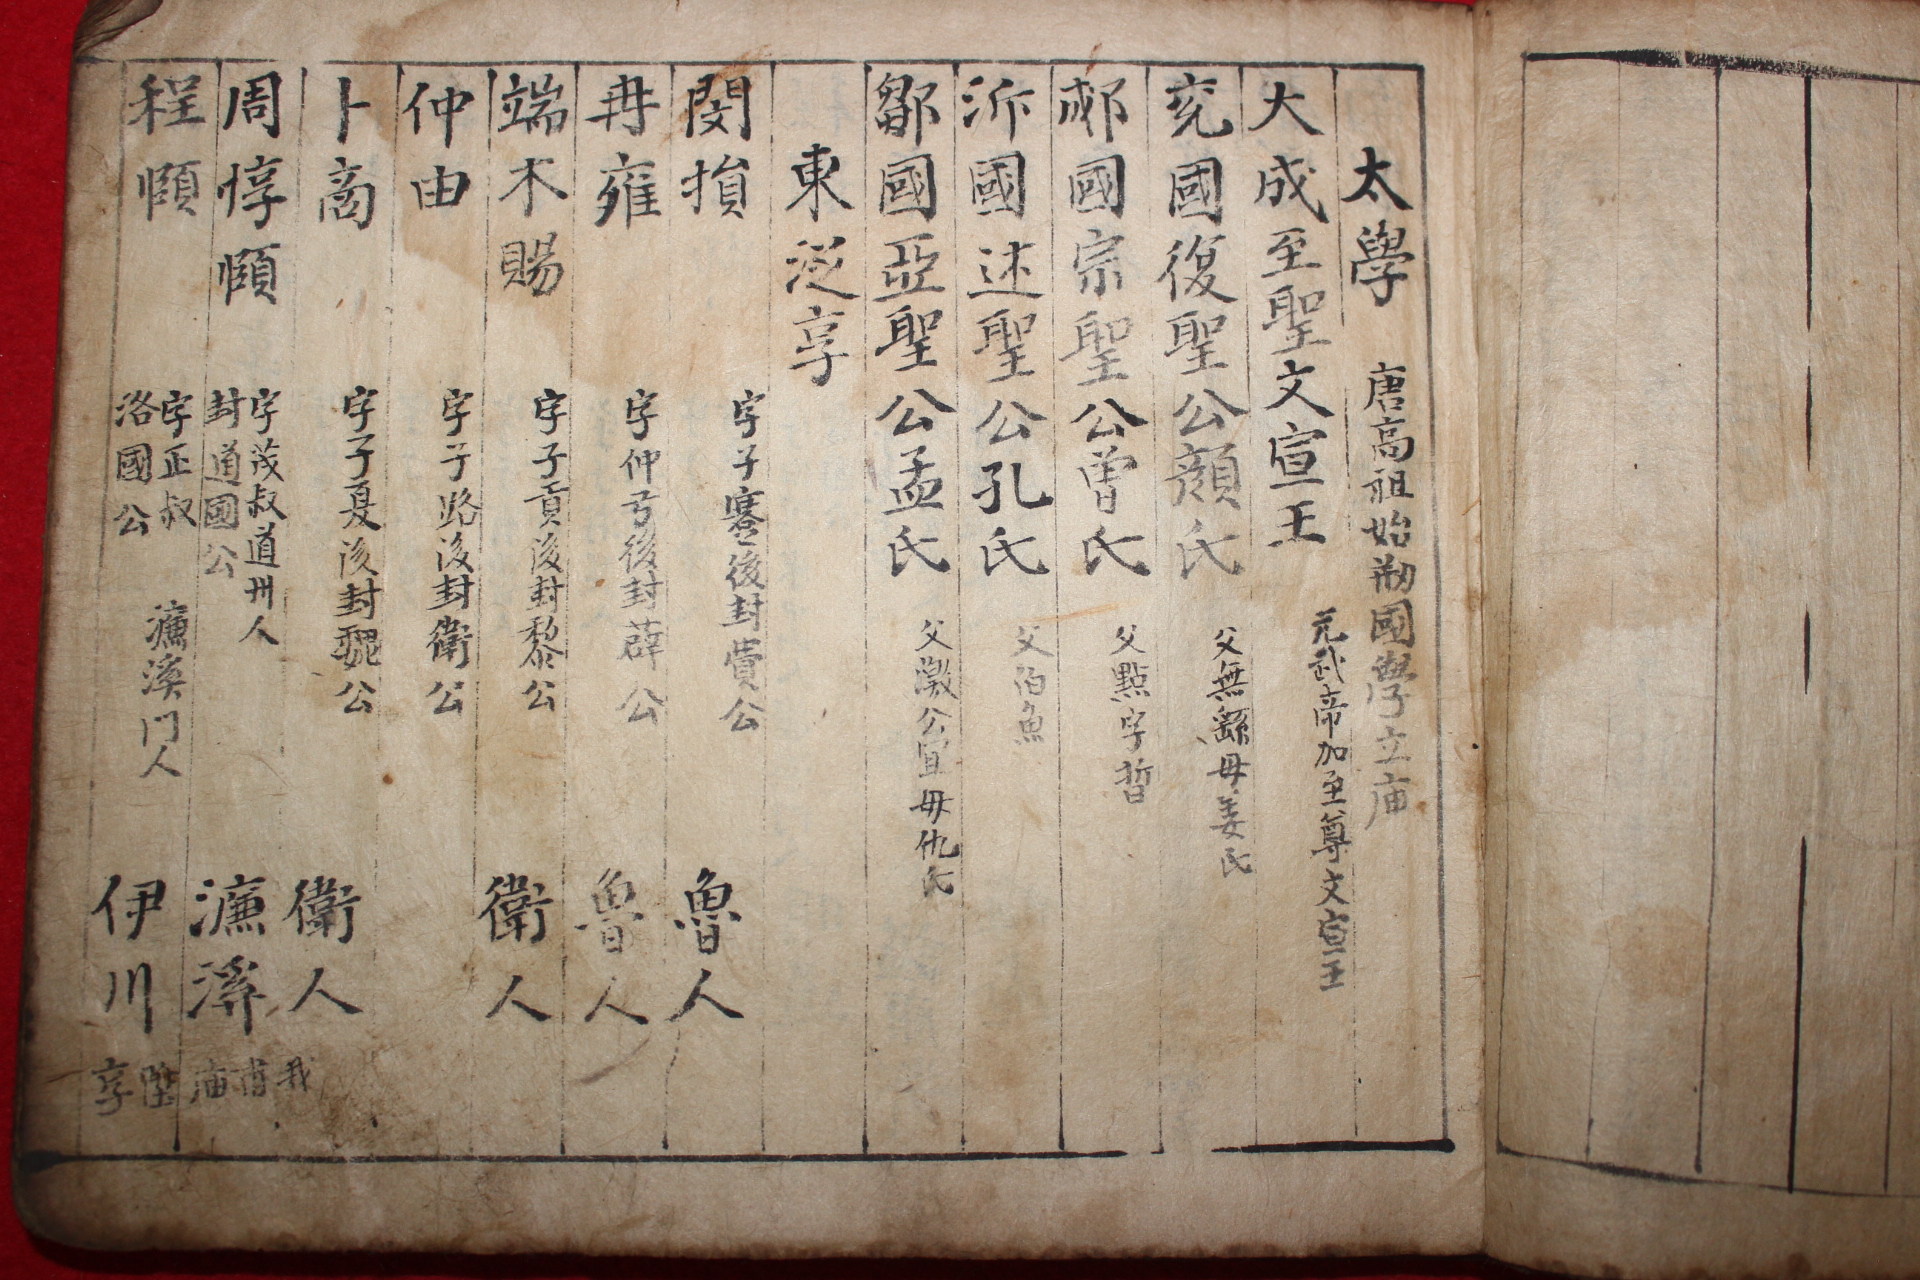 太學 唐高祖始刱國學立庙
大成至聖文宣王 元武帝加至尊文宣王
兖國復聖公顔氏 父無繇母姜氏
郕國宗聖公曾氏 父點字晳
沂國述聖公孔氏 父伯魚
鄒國亞聖公孟氏 父激公宜母仇氏
東従享
閔損 字子騫後封費公 魯人
冉雍 字仲弓後封薛公 魯人
端木賜 字子貢後封黎公 衛人
仲由 字子路後封衛公
卜商 字子夏後封魏公 衛人
周惇頤 字茂叔道州人 封道國公 濂溪
程頤 字正叔 洛國公 濂溪門人 伊川
我
庙
陞
享